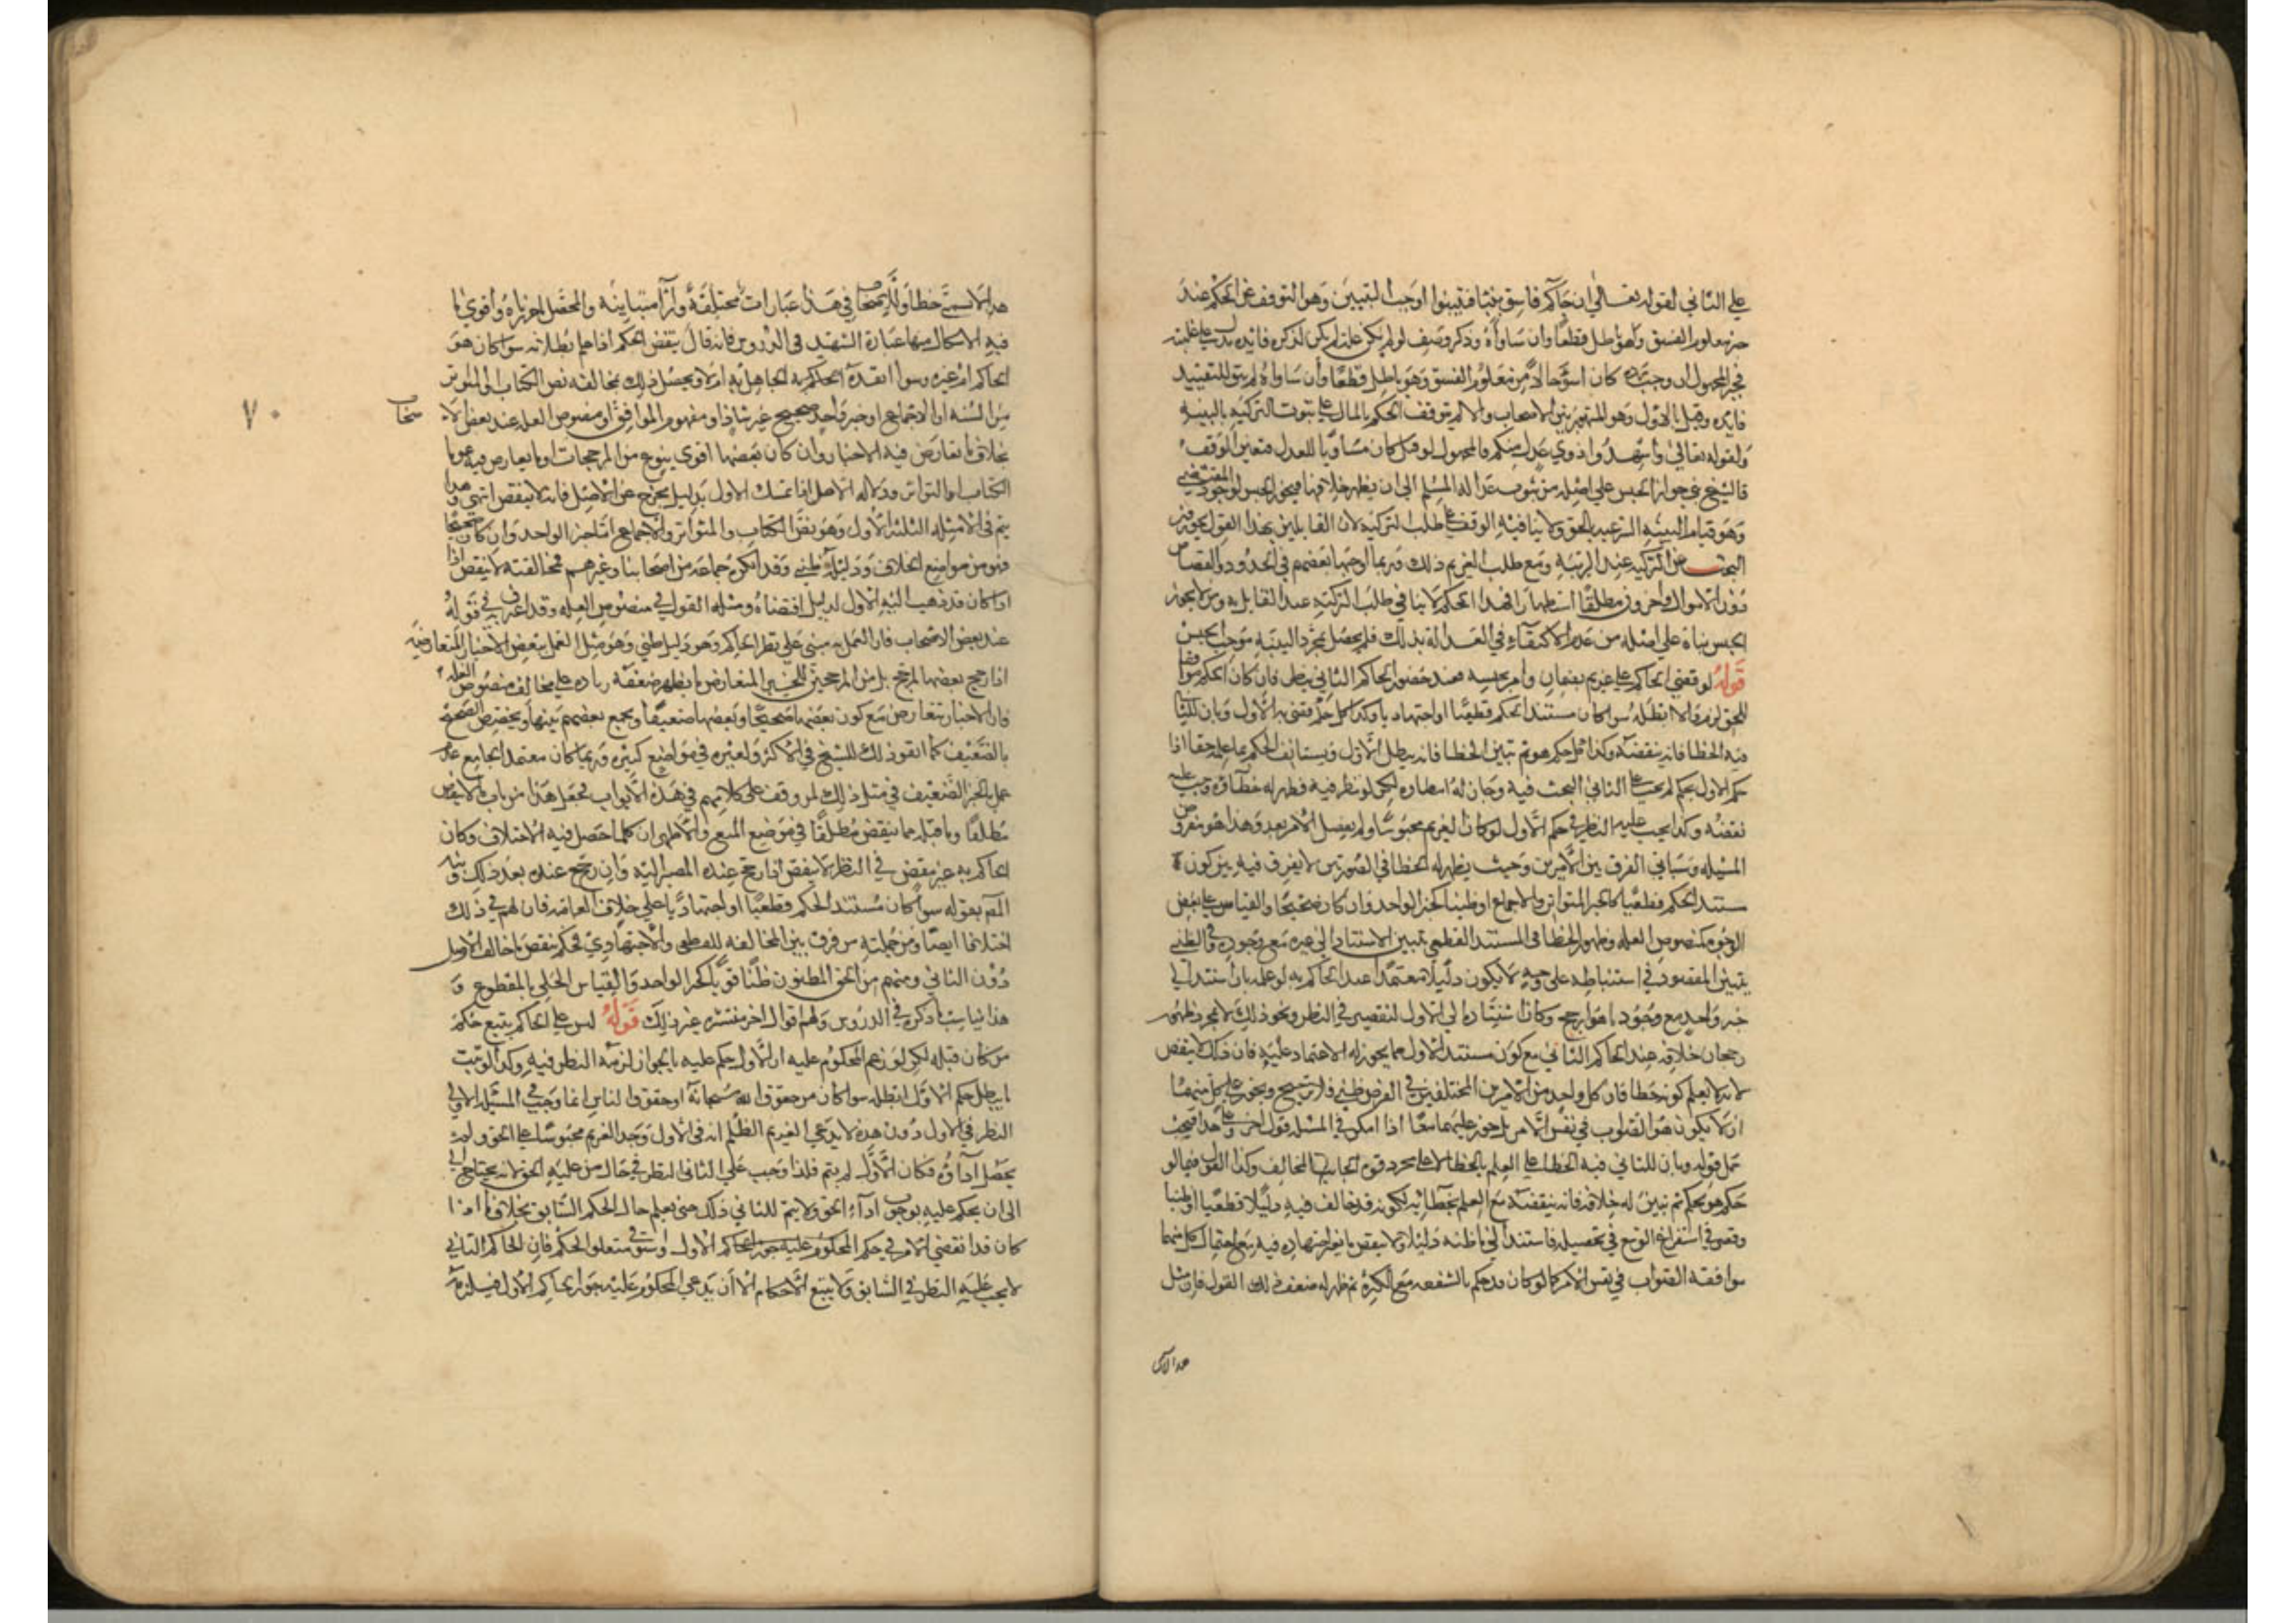 على الثاني لقوله تعالى ان جاكم فاسق بنبا فتبينوا اوجب التبيين وهو التوقف عن الحكم عند
معلوم الفسق وهو باطل قطعا وان ساواه وذكر وصف لو لم يكن علة لم يكن لذكره فائدة
في المجهول ان وجب رده كان اسوء حالا من معلوم الفسق وهو باطل قطعا وان ساواه لم يبق للتقييد
فايده وقيل بالاول وهو المشهور بين الاصحاب والا لم يتوقف الحكم بالمال على ثبوت التزكيه بالبينه
ولقوله تعالى واشهدوا ذوي عدل منكم فالمجهول لو قبل كان مساويا للعدل فتعين الوقف
فالشيخ بنى جواز الحبس على اصله من ثبوت عدالة المسلم الى ان يظهر خلافها فيجوز الحبس لوجود المقتضي
وهو قيام البينه الشرعيه بالحق ولا ينافيه الوقف على طلب التزكيه لان القايلين بهذا القول يجوزون
البحث عن التزكيه عند الريبة ومع طلب الغريم ذلك وربما اوجبها بعضهم في الحدود والقصاص
دون الاموال واخرون مطلقا استظهارا فهذا الحكم لا ينافي طلب التزكية عند القايل به ومن لا يجوز
الحبس بناه على اصله من عدم الاكتفاء في العدالة بذلك فلم يحصل بمجرد البينة موجب الحبس
قوله لو قضى الحاكم على غريم بضمان وامر بحبسه فعند حضور الحاكم الثاني ينظر فان كان الحكم موافقا
للحق لزم والا ابطله سوا كان مستند الحكم قطعيا او اجتهاديا وكذا كل حكم قضى به الاول وبان للثاني
فيه الخطا فانه ينقضه وكذا لو حكم هو ثم تبين الخطا فانه يبطل الاول ويستانف الحكم بما علمه حقا اذا
حكم الاول بحكم لم يجب على الثاني البحث فيه وجاز له امضاوه لكن لو نظر فيه فظهر له خطاوه وجب عليه
نقضه وكذا يجب عليه النظر في حكم الاول لو كان الغريم محبوسا ولم يفصل الامر بعد وهذا هو مفروض
المسيله وسياتي الفرق بين الامرين وحيث يظهر له الخطا في الصورتين لا يفرق فيه بين كون
مستند الحكم قطعيا كالخبر المتواتر والاجماع او ظنيا كخبر الواحد وان كان صحيحا والقياس على بعض
الوجوه كمنصوص العله وظهور الخطا في المستند القطعي بتبين الاستناد الى غيره مع وجوده وفي الظني
بتبين المقصود في استنباطه على وجه لا يكون دليلا معتمدا عند الحاكم به لو علمه بان استند الى
خبر واحد مع وجود ما هو ارجح وكان استناده الى الاول لتقصير في النظر ونحو ذلك لا بمجرد ظهور
رجحان خلافه عند الحاكم الثاني مع كون مستند الاول مما يجوز له الاعتماد عليه فان ذلك لا ينقض
لانه لا يعلم كونه خطا فان كل واحد من الامرين المختلفين في الفرض ظني قد رجح ويجوز على كل منهما
ان لا يكون هو الصواب في نفس الامر بل يجوز عليهما معا اذا امكن في المسئله قول اخر وعلى هذا فيجب
حمل قوله وبان للثاني فيه الخطا على العلم بالخطا لا على مجرد قوة الجانب المخالف وكذا القول فيما لو
حكم هو بحكم ثم تبين له خلافه فانه ينقضه مع العلم بخطائه لكونه قد خالف فيه دليلا قطعيا او ظنيا
وقصر في استفراغ الوسع في تحصيله فاستند الى ما ظنه دليلا ولا ينقض ما تغير اجتهاده فيه مع احتمال كل منهما
موافقة الصواب في نفس الامر كما لو كان قد حكم بالشفعه مع الكثرة ثم ظهر له ضعف ذلك القول فان مثل
هذا لا يسمى
هذا لا يسمى خطا وللاصحاب في هذا عبارات مختلفة وآرا متباينة والمحصل ما حررناه واقوى ما
فيه الاشكال منها عبارة الشهيد في الدروس فانه قال ينقض الحكم اذا علم بطلانه سوا كان هو
الحاكم ام غيره وسوا انفذه الحاكم به الجاهل به ام لا ويحصل ذلك بمخالفة نص الكتاب او المتواتر
من السنه او الاجماع او خبر واحد صحيح غير شاذ او مفهوم الموافقه او منصوص العله عند بعض الا
صحاب
٧٠
بخلاف ما تعارض فيه الاخبار وان كان بعضها اقوى بنوع من المرجحات او ما تعارض فيه عموما
الكتاب او المتواتر ودلالة الاصل اذا تمسك الاول بدليل يخرج عن الاصل فانه لا ينقض انتهى وهذا
يتم في الامثله الثلثة الاول وهو نص الكتاب والمتواتر والاجماع اما خبر الواحد وان كان صحيحا
فهو من مواضع الخلاف ودليله ظني وقد انكره جماعة من اصحابنا وغيرهم فمخالفته لا ينقض اذا
اذا كان قد ذهب اليه الاول لدليل اقتضاه ومثله القول في منصوص العله وقد اعترف به في قوله
عند بعض الاصحاب فان العمل به مبني على نظر الحاكم وهو دليل ظني وهو مثل العمل ببعض الاخبار المتعارضه
اذا رجح بعضها المرجح بل من المرجحين للخبر المتعارض ما يظهر ضعفه زيادة على مخالف منصوص العله
فان الاخبار تتعارض مع كون بعضها صحيحا وبعضها ضعيفا ويجمع بعضهم بينها ويخصص الصحيح
بالضعيف كما اتفق ذلك للشيخ في الاكثر ولغيره في مواضع كثيره وربما كان معتمد الجامع على
عمل بالخبر الضعيف في مثل ذلك لمن وقف على كلامهم في هذه الابواب فجعل هذا من باب ما لا ينقض
مطلقا وما قبله مما ينقض مطلقا في موضع المنع والاظهر ان كلما حصل فيه الاختلاف وكان
الحاكم به غير مقصر في النظر لا ينقض اذا رجح عنده المصير اليه وان رجح عنده بعد ذلك ونبه
المصم بقوله سوا كان مستند الحكم قطعيا او اجتهاديا على خلاف العامه فان لهم في ذلك
اختلافا ايضا ومن جملته من فرق بين المخالفه للقطعي والاجتهادي فحكم بنقض ما خالف الاول
دون الثاني ومنهم من الحق المظنون ظنا قويا كخبر الواحد والقياس الجلي بالمقطوع و
هذا يناسب ما ذكره في الدروس ولهم اقوال اخر منتشره غير ذلك قوله ليس على الحاكم تتبع حكم
من كان قبله لكن لو زعم المحكوم عليه ان الاول حكم عليه بالجور لزمه النظر فيه وكذا لو ثبت
ما يبطل حكم الاول ابطله سوا كان من حقوق الله سبحانه او حقوق الناس انما وجب في المسئله الاولى
النظر في الاول دون هذه لا يدعي الغريم الظلم انه في الاول وجد الغريم محبوسا على الحق ولم
يحصل اداوه فكان الاول لم يتم فلذا وجب على الثاني النظر في حال من عليه الحق لانه يحتاج في
الى ان يحكم عليه بوجوب اداء الحق ولا يتم للثاني ذلك حتى يعلم حال الحكم السابق بخلاف ما اذا
كان قد انقضى الامر في حكم المحكوم عليه جور الحاكم الاول واستوفى متعلق الحكم فان الحاكم الثاني
لا يجب عليه النظر في السابق ولا يتبع الاحكام الا ان يدعي المحكوم عليه جور الحاكم الاول فيلزمه